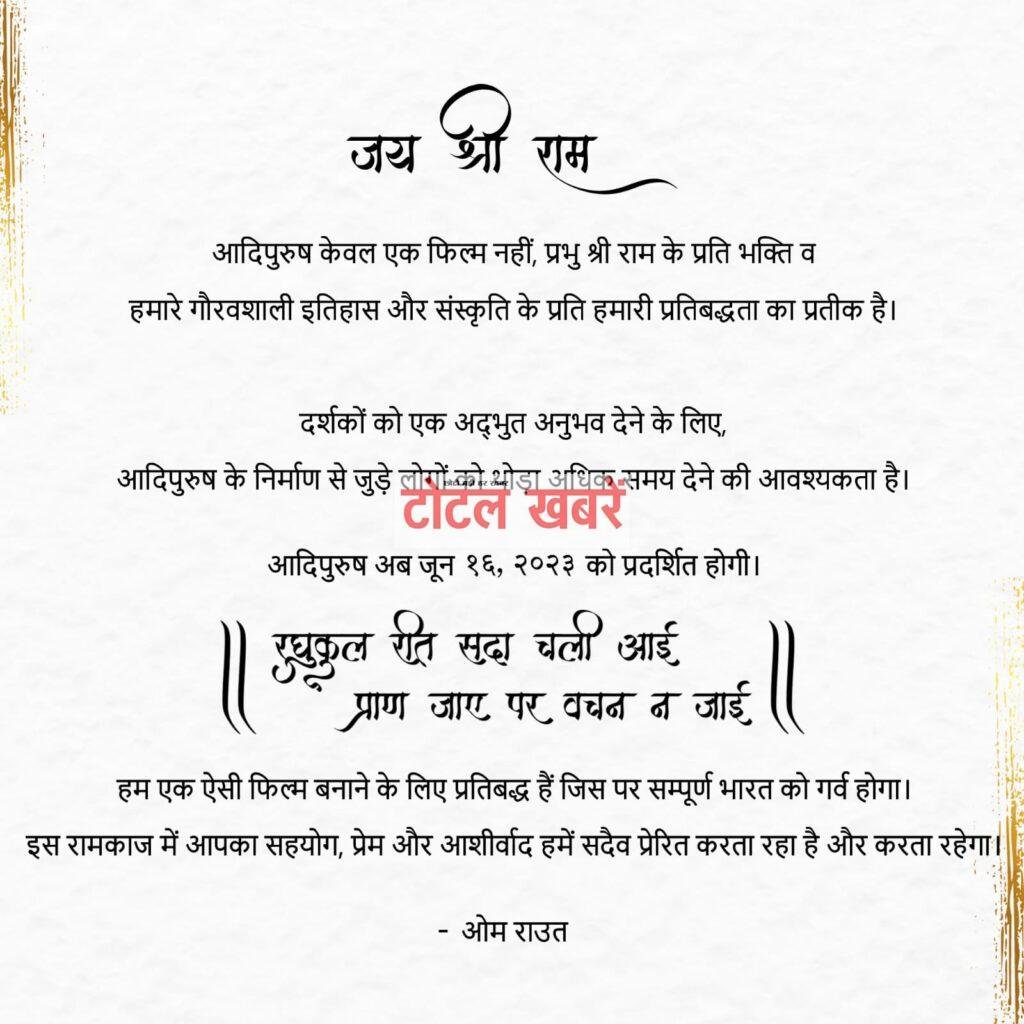 जय श्री राम
आदिपुरुष केवल एक फिल्म नहीं, प्रभु श्री राम के प्रति भक्ति व
हमारे गौरवशाली इतिहास और संस्कृति के प्रति हमारी प्रतिबद्धता का प्रतीक है।
दर्शकों को एक अद्भुत अनुभव देने के लिए,
आदिपुरुष के निर्माण से जुड़े लोगों को थोड़ा अधिक समय देने की आवश्यकता है।
टोटल खबरें
आदिपुरुष अब जून १६, २०२३ को प्रदर्शित होगी।
॥ रघुकुल रीत सदा चली आई
प्राण जाए पर वचन न जाई ॥
हम एक ऐसी फिल्म बनाने के लिए प्रतिबद्ध हैं जिस पर सम्पूर्ण भारत को गर्व होगा।
इस रामकाज में आपका सहयोग, प्रेम और आशीर्वाद हमें सदैव प्रेरित करता रहा है और करता रहेगा।
- ओम राउत